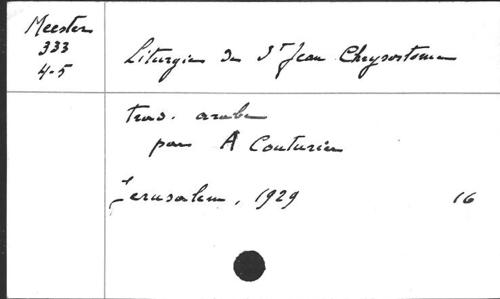 Meester
333
4-5
Liturgie de St Jean Chrysostome
trad. arabe
par A Couturier
Jerusalem, 1929 16